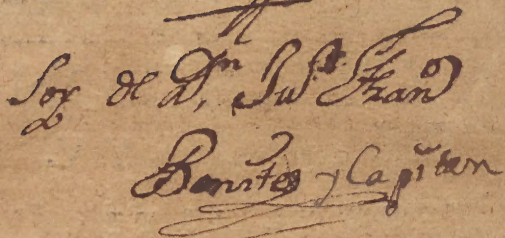 Soy de Dn. Juph Franco
Benites y Capitan